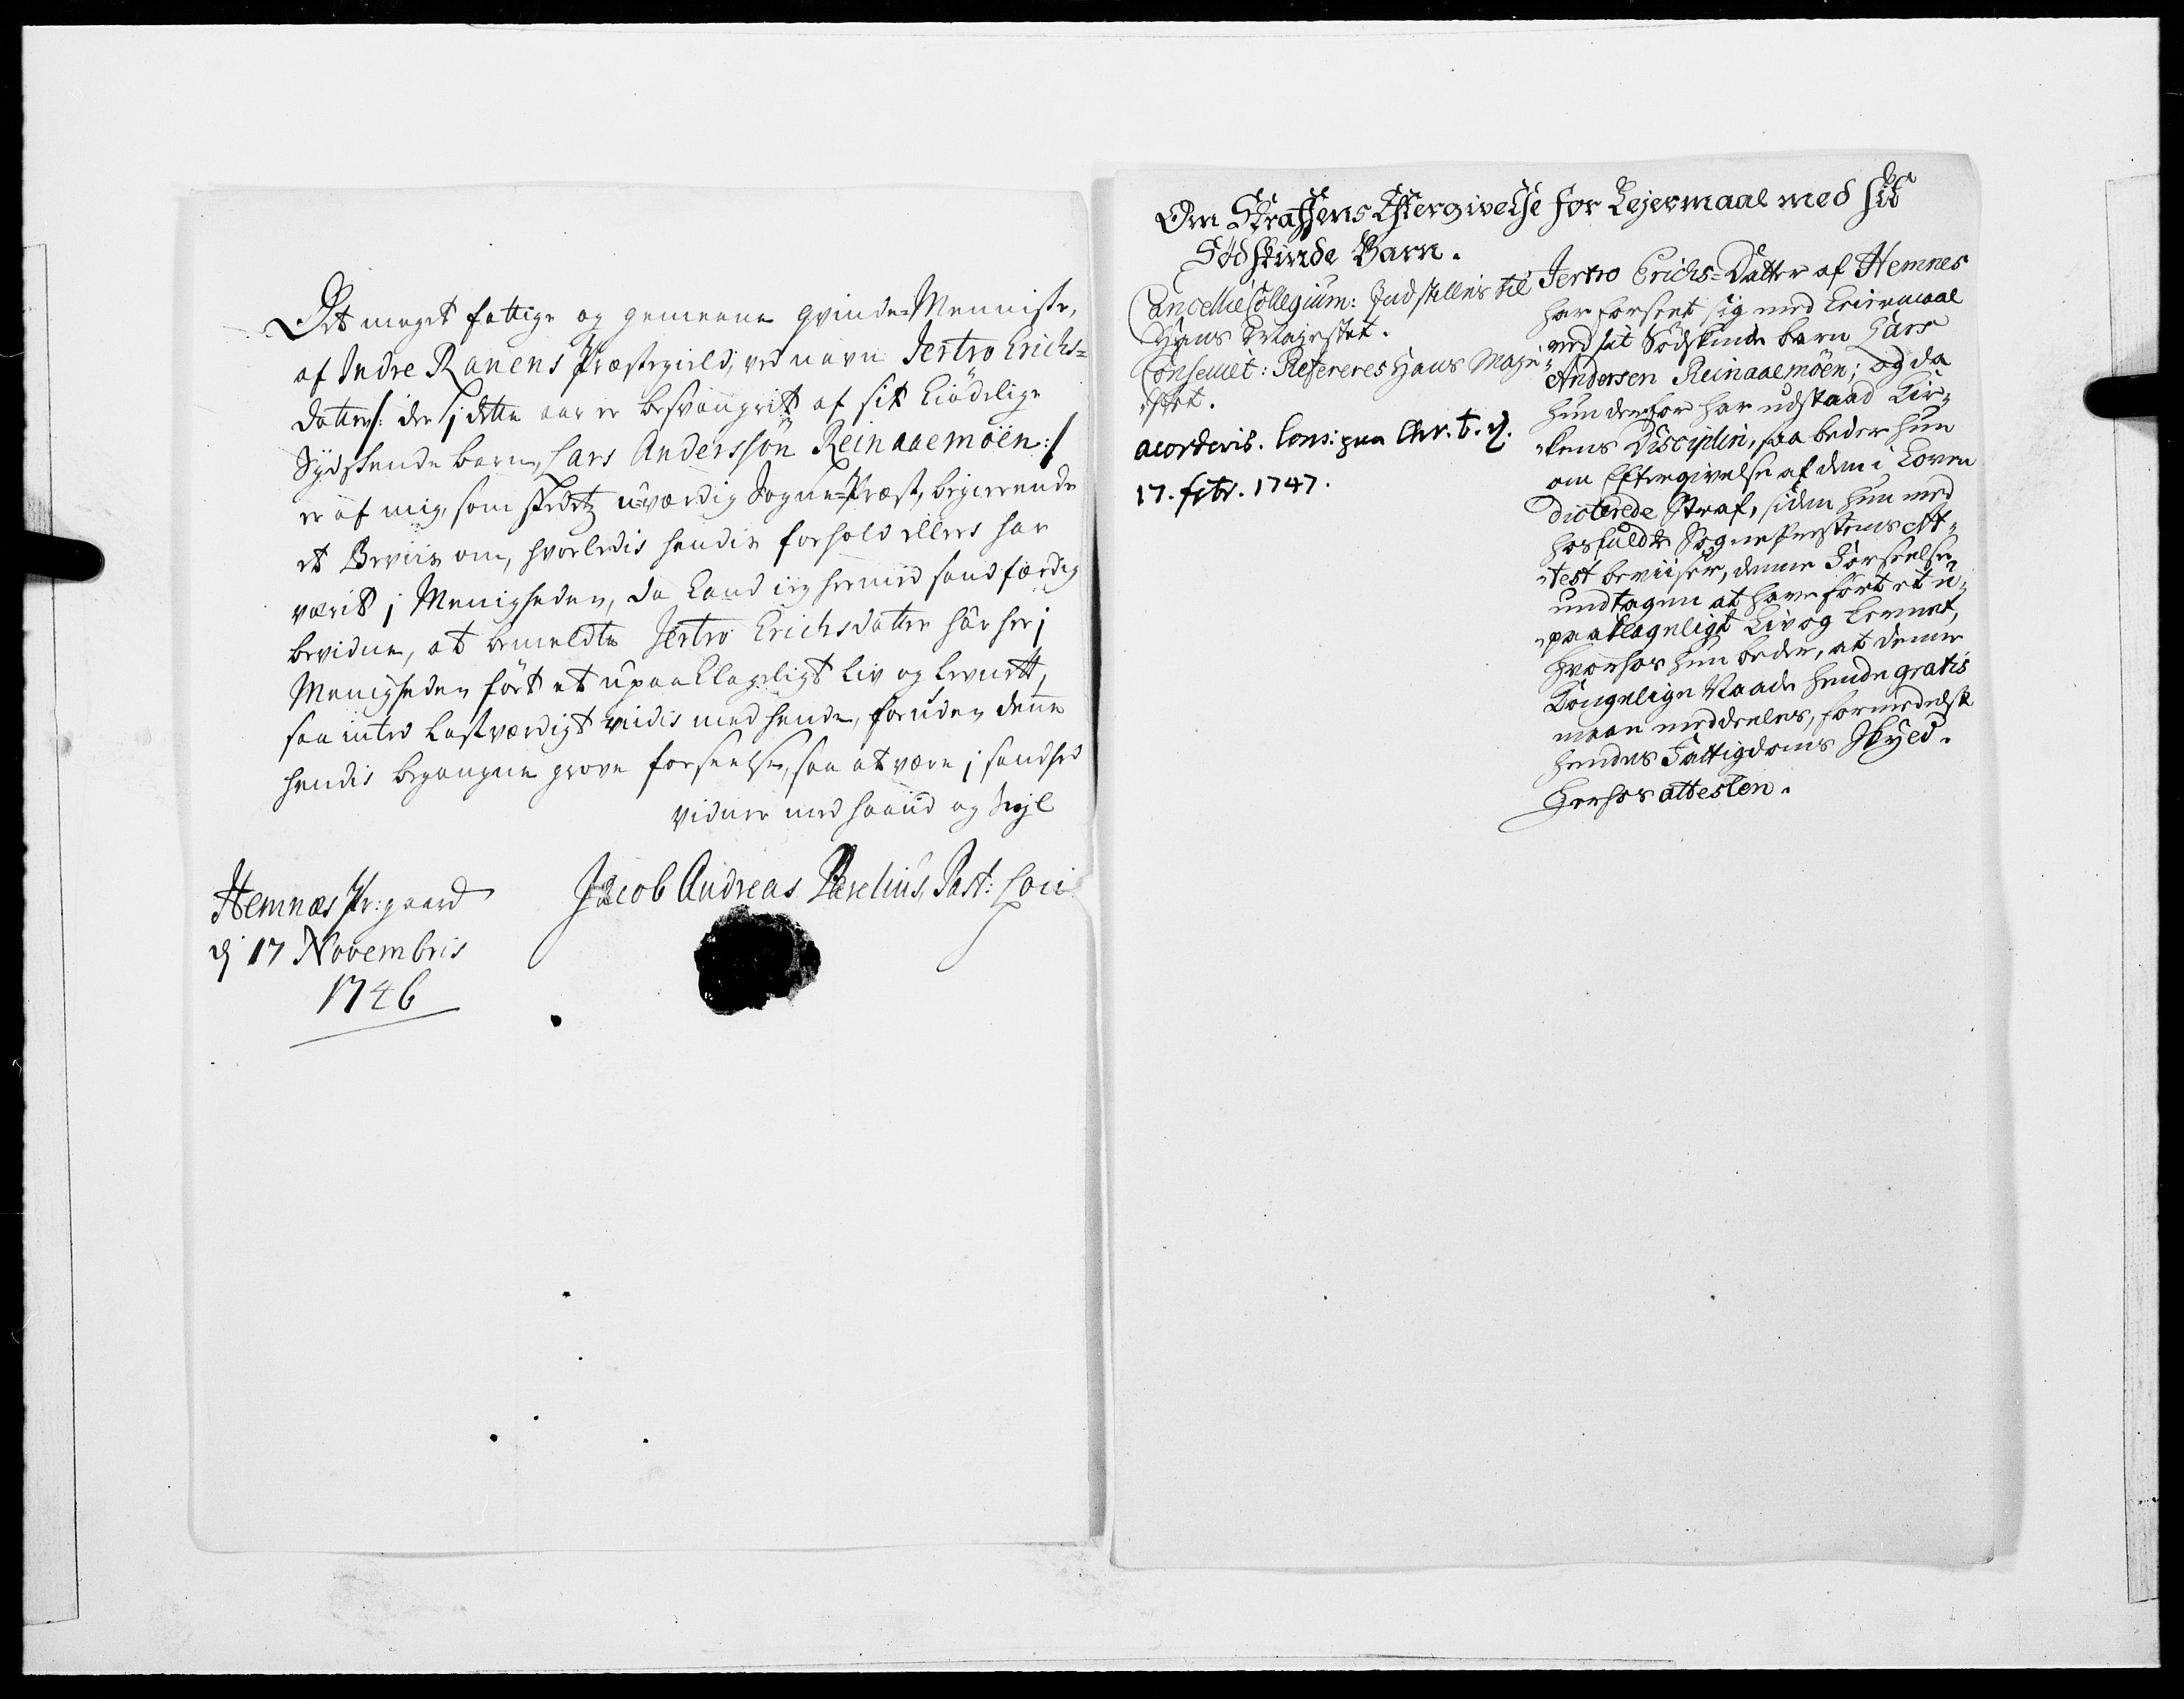 Det meget fattige og gemeene qvinde-Menniske,
af Indre Ranens Præstegield, ved navn Jertro Erichs-
datter /: der i dette aar er besvangrit af sit kiödelige
Sydskende barn, Lars Anderssøn Reinaaemoen :/
er af mig, som stedetz u-værdig Sogne-Præst, begierende
et Beviis om, hvorledis hendis forhold ellers har
værit i Menigheden, da kand ieg hermed sandfærdig
bevidne, at bemeldte Jertro Erichsdatter har her i
Menigheden fört et upaaklageligt Liv og Levnett,
saa intet Lastværdigt vidis med hende, foruden denne
hendis begangne grove forseelse, saa at være i sandhed
vidner med haand og Segl
Hemnæs Pr: gaard
dj 17 Novembris
1746
Jacob Andreas Parelius, Past: Loci
Om Straffens Eftergivelse for Lejermaal med sit
Södskinde Barn.
Cancellie Collegium: Indstilles til
Hans Majestet.
Conseillet: Refereres Hans Maje-
stet.
accorderis. Cons: paa Chr. b. d.
17. febr. 1747.
Jertro Erichs-Datter af Hemnes
har forseet sig med Leiermaal
med sit Södskinde barn Lars
Andersen Reinaaemöen; og da
hun derfor har udstaad Kir-
kens Disciplin, saa beder hun
om Eftergivelse af den i Loven
dicterede Straf, siden hun med
hosfuldte Sognepræstens Att-
test beviiser, denne Forseelse
undtagen at have fört et u-
paaklageligt Liv og Levnet,
Hvorhos hun beder, at denne
Kongelige Naade hende gratis
maae meddeeles, formedelst
hendes Fattigdoms Skyld.
Herhos attesten.